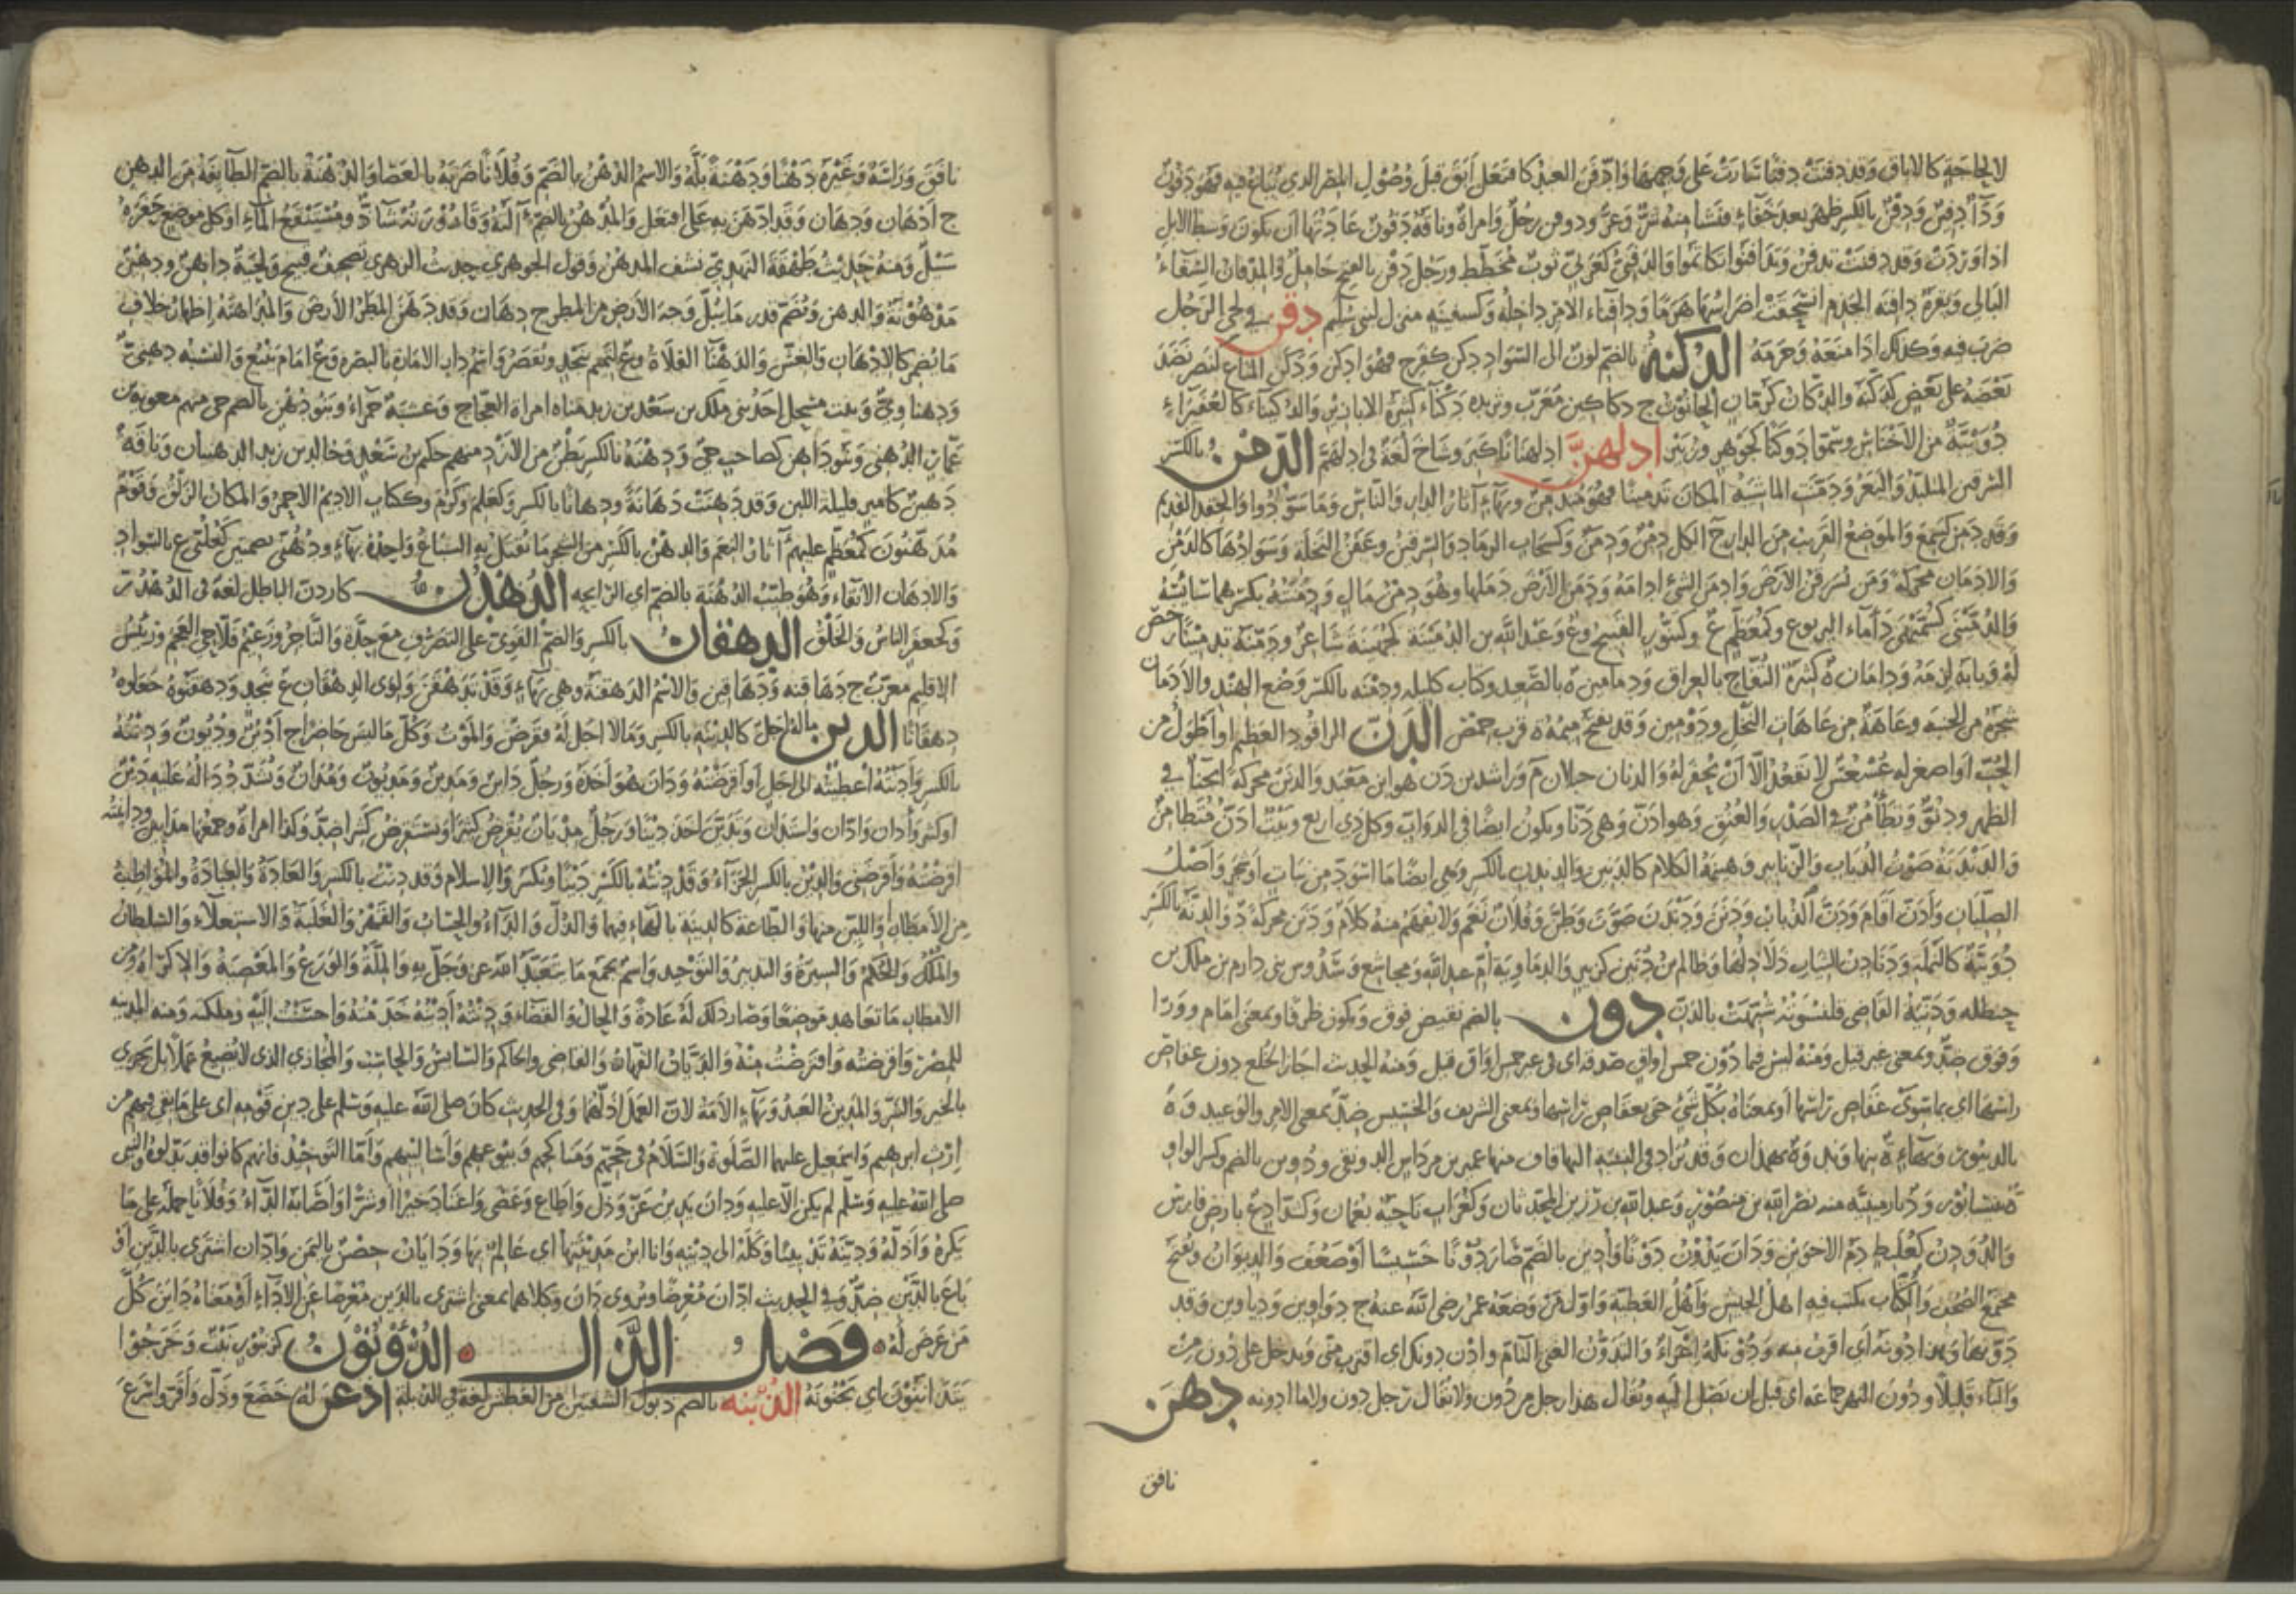 لا لحاجة كالاباق وقد دفنت دفنا سارت على وجهها وادفن العبد كافتعل ابق قبل وصول المصر الذي يباع فيه فهو دفون
وداء دفين ودفن بالكسر ظهر بعد خفاء فنشا منه شر وعر ودوفن رجل وامراة وناقة دفون عادتها ان تكون وسط الابل
اذا وردت وقد دفنت تدفن وتدافنوا تكاتموا والدفني كعربي ثوب مخطط ورجل دفن بالفتح خامل والمدفان السقاء
البالي وبقرة دافنة الجذم انسحقت اضراسها هرما ودافناء الامر داخله وكسفينة منزل لبني سليم دقن في لحي الرجل
ضرب فيه وكذلك اذا منعه وحرمه الدكنة بالضم لون الى السواد دكن كفرح فهو ادكن ودكن المتاع كنصر نضد
بعضه على بعض كدكنه والدكان كرمان الحانوت ج دكاكين معرب وثريدة دكناء كثيرة الابازير والدكيناء كالغبيراء
دويبة من الاحناش وسموا دوكنا كجوهر وزبير ادلهن ادلهنانا كبر وشاخ لغة في ادلهم الدمن بالكسر
السرقين المتلبد والبعر ودمنت الماشية المكان تدمينا فهو متدمن وبهاء آثار الدار والناس وما سودوا والحقد القديم
وقد دمن كسمع والموضع القريب من الدار ج الكل دمن ودمن وكسحاب الرماد والسرقين وعفن النخلة وسوادها كالدمن
والادمان محركة ودمن سرقن الارض وادمن الشئ ادامه ودمن الارض دملها وهو دمن مال ودمنته بكسرهما سائسه
له وبابه لزمه ودامان ة كثيرة التفاح بالعراق ودمامين ة بالصعيد وكتاب كليلة ودمنة بالكسر وضع الهند والادمان
شجرة من الجنبة وعاهة من عاهات النخل ودومين وقد يفتح ميمه ة قرب حمص الدن الراقود العظيم او اطول من
الحب او اصغر له عسعس لا يقعد الا ان يحفر له والدنان جبلان م وراشد بن دن هو ابن معبد والدنن محركة انحناء في
الظهر ودنو وتطامن في الصدر والعنق وهو ادن وهي دنا ويكون ايضا في الدواب وكل ذي اربع وبيت ادن متطامن
والدندنة صوت الذباب والزنابير وهينمة الكلام كالدنين والدندن بالكسر وهي ايضا ما اسود من نبات او شجر واصل
الصليان وادن اقام ودن الذباب ودنن ودندن صوت وطن وفلان نغم ولا يفهم منه كلام ودنن محركة د والدنة بالكسر
دويبة كالنملة ودنادن الثياب ذلاذلها وظالم بن دنين كزبير والدماوية ام عبد الله ومجاشع وسدوس بني دارم بن ملك بن
حنظلة ودنية القاضي قلنسوته شبهت بالدن دون بالضم نقيض فوق ويكون ظرفا وبمعنى امام ووراء
وفوق ضد وبمعنى غير قيل ومنه ليس فيما دون خمس اواق صدقة اي في غير خمس اواق قيل ومنه الحديث اجاز الخلع دون عقاص
راسها اي بما سوى عقاص راسها او بمعناه بكل شئ حتى بعقاص راسها وبمعنى الشريف والخسيس ضد بمعنى الامر والوعيد وة
بالدينور وبهاء ة بنهاوند وة بهمدان وقد تزاد في النسبة اليها قاف منها عمير بن مرداس الدونقي ودوين بالضم وكسر الواو
ة بنيسابور ود بارمينية منه نصر الله بن منصور وعبد الله بن رزين المحدثان وكغراب ناحية بعمان وكشداد ع بارض فارس
والدودن كعلبط دم الاخوين ودان يدون دونا وادين بالضم صار دونا خسيسا او ضعف والديوان ويفتح
مجتمع الصحف والكتاب يكتب فيه اهل الجيش واهل العطية واول من وضعه عمر رضى الله عنه ج دواوين ودياوين وقد
دونه وهذا دونه اي اقرب منه ودونكه اغراء والتدون الغنى التام وادن دونك اي اقترب مني ويدخل على دون من
والباء قليلا ودون النهر جماعة اي قبل ان تصل اليه ويقال هذا رجل من دون ولا يقال رجل دون ولا ما ادونه دهن
نافق
نافق وراسه وغيره دهنا ودهنة بله والاسم الدهن بالضم وفلانا ضربه بالعصا والدهنة بالضم الطايفة من الدهن
ج ادهان ودهان وقد ادهن به على افتعل والمدهن بالضم آلته وقارورته شاذ ومستنقع الماء او كل موضع حفره
سيل ومنه حديث طهفة النهدي نشف المدهن وقول الجوهري حديث الزهري تصحيف قبيح ولحية داهن ودهين
مدهونة والدهن ويضم قدر ما يبل وجه الارض من المطر ج دهان وقد دهن المطر الارض والمداهنة اظهار خلاف
ما يضمر كالادهان والغش والدهنا الفلاة وع لتميم بنجد ويقصر واسم دار الامارة بالبصرة وع امام ينبع والنسبة دهني
ودهناوي وبنت مسحل احد بني ملك بن سعد بن زيد مناة امراة العجاج وعشبة حمراء وبنو دهن بالضم حي منهم معوية بن
عمار الدهني وبنو داهن كصاحب حي ودهنة بالكسر بطن من الازد منهم حكيم بن سعد وخالد بن زيد الدهنيان وناقة
دهين كامير قليلة اللبن وقد دهنت دهانة ودهانا بالكسر وكعلم وكرم وككتاب الاديم الاحمر والمكان الزلق وقوم
مدهنون كمعظم عليهم آثار النعم والدهن بالكسر من الشجر ما يقتل به السباع واحده بهاء
والادهان الانقاء وهو طيب الدهنة بالضم اي الرايحة الدهدن كاردن الباطل لغة في الدهدر
وكجعفر الناس والخلق الدهقان بالكسر والضم القوي على التصرف مع حدة والتاجر وزعيم فلاحي العجم ورئيس
الاقليم معرب ج دهاقنة ودهاقين والاسم الدهقنة وهي بهاء وقد تدهقن ولوى الدهقان ع بنجد ودهقنوه جعلوه
دهقانا الدين ماله اجل كالدينة بالكسر وما لا اجل له فقرض والموت وكل ما ليس حاضرا ج ادين وديون ودنته
بالكسر وادنته اعطيته الى اجل او اقرضته ودان هو اخذه ورجل داين ومدين ومديون ومدان وتشدد داله عليه دين
او كثير وادان وادان واستدان وتدين اخذ دينا ورجل مديان يقرض كثيرا ويستقرض كثيرا ضد وكذا امراة وجمعهما مدايين وداينته
اقرضته واقرضني والدين بالكسر الجزاء وقد دنته بالكسر دينا ويكسر والاسلام وقد دنت بالكسر والعادة والعبادة والمواظب
من الامطار واللين منها والطاعة كالدينة بالهاء فيهما والذل والداء والحساب والقهر والغلبة والاستعلاء والسلطان
والملك والحكم والسيرة والتدبير والتوحيد واسم لجميع ما يتعبد الله عز وجل به والملة والورع والمعصية والاكراه ومن
الامطار ما تعاهد موضعا وصار ذلك له عادة والحال والقضاء ودنته ادينه خدمته واحسنت اليه وملكته ومنه المدينة
للمصر واقرضته واقترضت منه والديان القهار والقاضي والحاكم والسائس والحاسب والمجازي الذي لا يضيع عملا بل يجزي
بالخير والشر والمدين العبد وبهاء الامة لان العمل اذلهما وفي الحديث كان صلى الله عليه وسلم على دين قومه اي على ما بقي فيهم من
ارث ابرهيم واسمعيل عليهما الصلوة والسلام في حجهم ومناكحهم وبيوعهم واساليبهم واما التوحيد فانهم كانوا قد بدلوه والنبي
صلى الله عليه وسلم لم يكن الا عليه ودان يدين عز وذل واطاع وعصى واعتاد خيرا او شرا واصابه الداء وفلانا حمله على ما
يكره واذله ودينه تديينا وكله الى دينه وانا ابن مدينتها اي عالم بها ودايان حصن باليمن وادان اشترى بالدين او
باع بالدين ضد وفي الحديث ادان معرضا ويروى دان وكلاهما بمعنى اشترى بالدين معرضا عن الاداء او معناه داين كل
من عرض له فصل الذال الذؤنون كزنبور نبت وخرجوا
يتذانون اي يجنونه الذبنة بالضم ذبول الشفتين من العطش لغة في الذبلة اذعن له خضع وذل واقر واسرع